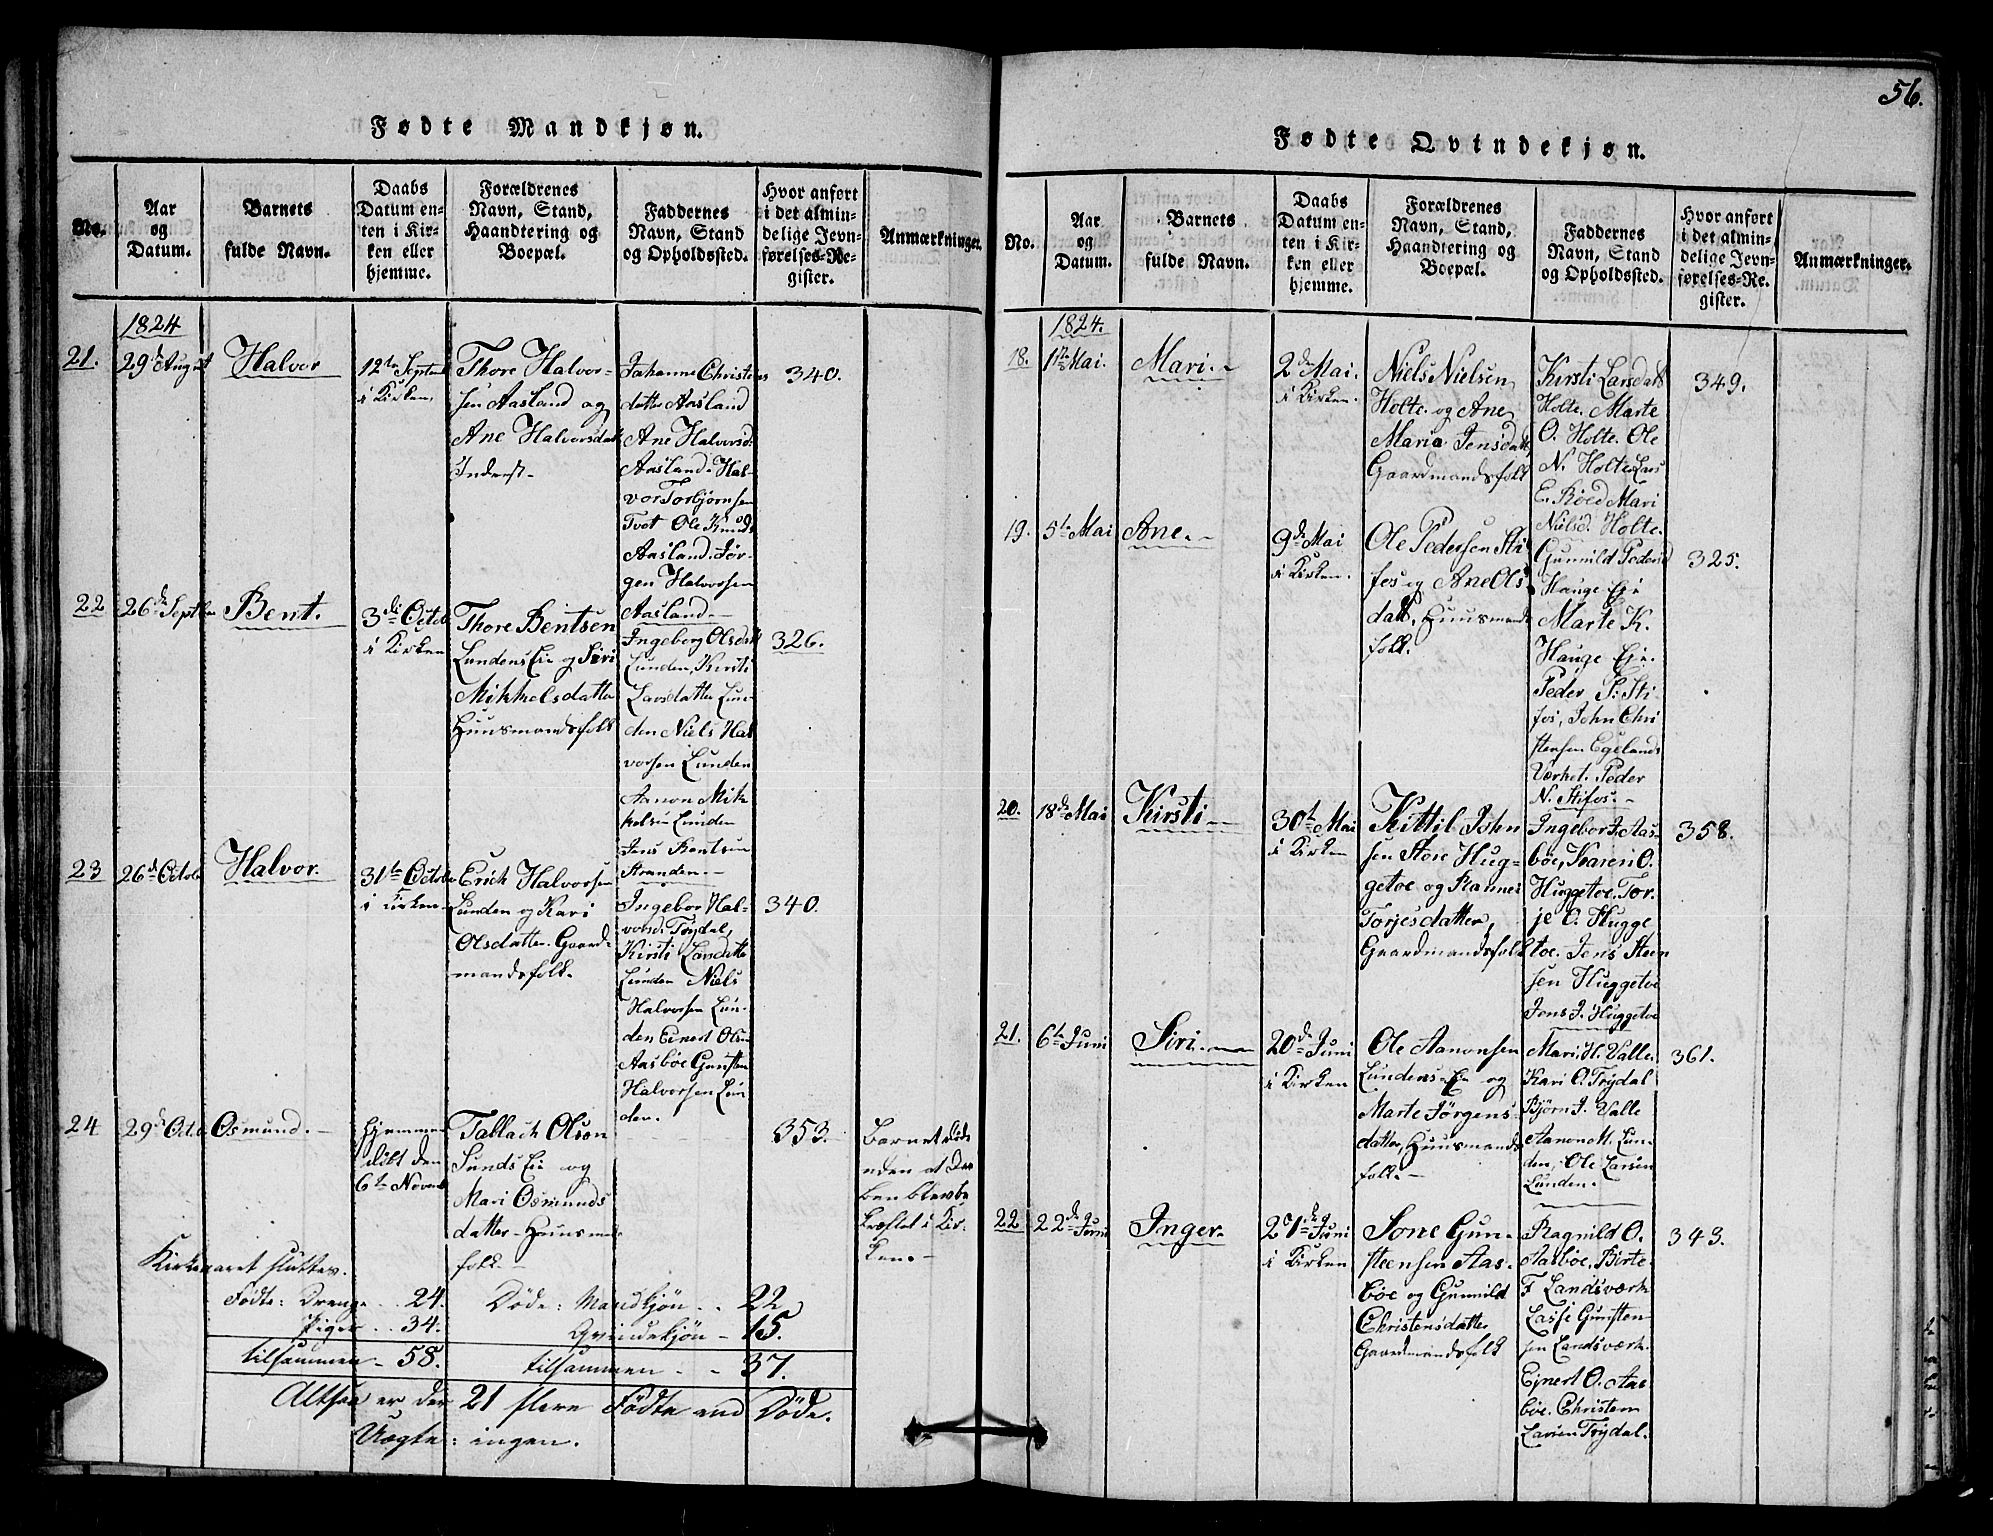 Fødte Mandkjøn.
No.
Aar
og
Datum.
Barnets
fulde Navn.
Daabs
Datum en-
ten i Kir-
ken eller
hjemme.
Forældrenes
Navn, Stand,
Haandtering og
Boepæl.
Faddernes
Navn, Stand
og Opholdssted.
Hvor anført
i det almin-
delige Jevn-
førelses-Re-
gister.
Anmærkninger.
1824
21.
29de August
Halvor
12te Septemb
i Kirken.
Thore Halvor-
sen Aasland og
Ane Halvorsdatt
Inderst-
Johanne Christens
datter Aasland
Ane Halvorsd.
Aasland. Hal-
vor Torbjørnsen
Tvet Ole Knuds
Aasland. Jør-
gen Halvorsen
Aasland.-
340.
22
26de Septbr
Bent.
3die Octob
i Kirken
Thore Bentsen
Lundens Eie og Siri
Mikkelsdatter
Huusmandsfolk
Ingeborg Olsdatt
Lunden, Kirsti
Larsdatter Lun-
den Niels Hal
vorsen Lunden
Aanon Mik
kelsen Lunden
Jens Bentsen
Stranden.-
326.
23
26de Octob
Halvor.
31te Octobr
i Kirken.
Erich Halvorsen
Lunden og Kari
Olsdatter. Gaard-
mandsfolk.
Ingebor Hal-
vorsd. Trydal,
Kirsti Larsdatte
Lunden Niels
Halvorsen Lun-
den Einert Ols
Aasbøe Gunsten
Halvorsen Lun
den.
340.
24
29de Octb
Osmund.-
Hjemme
døbt den
6te Novemb
Tallach Olson
Sunds Eie og
Mari Osmunds
datter. Huusmands
folk.-
353.
Barnet døde
uden at Daa
ben blev be
kræftet i Kir-
ken.-
Kirkeaaret sluttes.
Fødte: Drenge .. 24.
Piger .. 34.
tilsammen - 58.
Døde: Mandkjøn .. 22
Qvindekjøn - 15.
tilsammen - - 37.
Altsaa er der 21 flere Fødte end Døde.
Uægte: ingen.
56.
Fødte Qvindekjøn.
No.
Aar
og
Datum.
Barnets
fulde Navn.
Daabs
Datum en-
ten i Kir-
ken eller
hjemme.
Forældrenes
Navn, Stand,
Haandtering og
Boepæl.
Faddernes
Navn, Stand
og Opholdssted.
Hvor anført
i det almin-
delige Jevn-
førelses-Re-
gister.
Anmærkninger.
1824.
18.
1ste Mai.
Mari.-
2de Mai.
i Kirken.
Niels Nielsen
Holte og Ane
Maria Jensdatt,
Gaardmandsfolk
Kirsti Larsdatt
Holte. Marte
O. Holte. Ole
N. Holte Lars
E. Røed Mari
Nielsd. Holte.
349.
19.
5te Mai
Ane.-
9de Mai
i Kirken.
Ole Pedersen Sti
fos og Ane Ols
datt, Huusmands
folk.
Gunnild Pedersd
Hauge Eje
Marte K.
Hauge Eje.
Peder P. Sti
fos, John Chri
stensen Egelands
Værket. Peder
N. Stifos.-
325.
20.
18de Mai
Kirsti-
30te Mai
i Kirken
Kittil Jsten
sen Store Hug-
getoe og Rannei
Torjesdatter,
Gaardmandsfolk
Ingebor J. Aas-
bøe, Karen O.
Huggetoe, Tor-
je E. Hugge
toe. Jens Steen
sen Huggetoe
Jens J. Huggetoe
358.
21.
6te Juni
Siri.-
20de Juni
i Kirken
Ole Aanonsen
Lundens Eie og
Marte Jørgens-
datter, Huusmands
folk.-
Mari. H. Valle,
Kari O. Trydal
Bjørn J. Valle
Aanon M. Lun-
den, Ole Larsen
Lunden.-
361.
22
22de Juni
Inger.
27de Juni
i Kirken
Sone Gun-
steensen Aas-
bøe og Gunnild
Christensdatter
Gaardmandsfolk
Ragnild O.
Aasbøe, Birte
F. Landsværk
Lasse Gunsten
sen Landsværk.
Ejnert O. Aas
bøe. Christen
Larsen Trydal.
343.